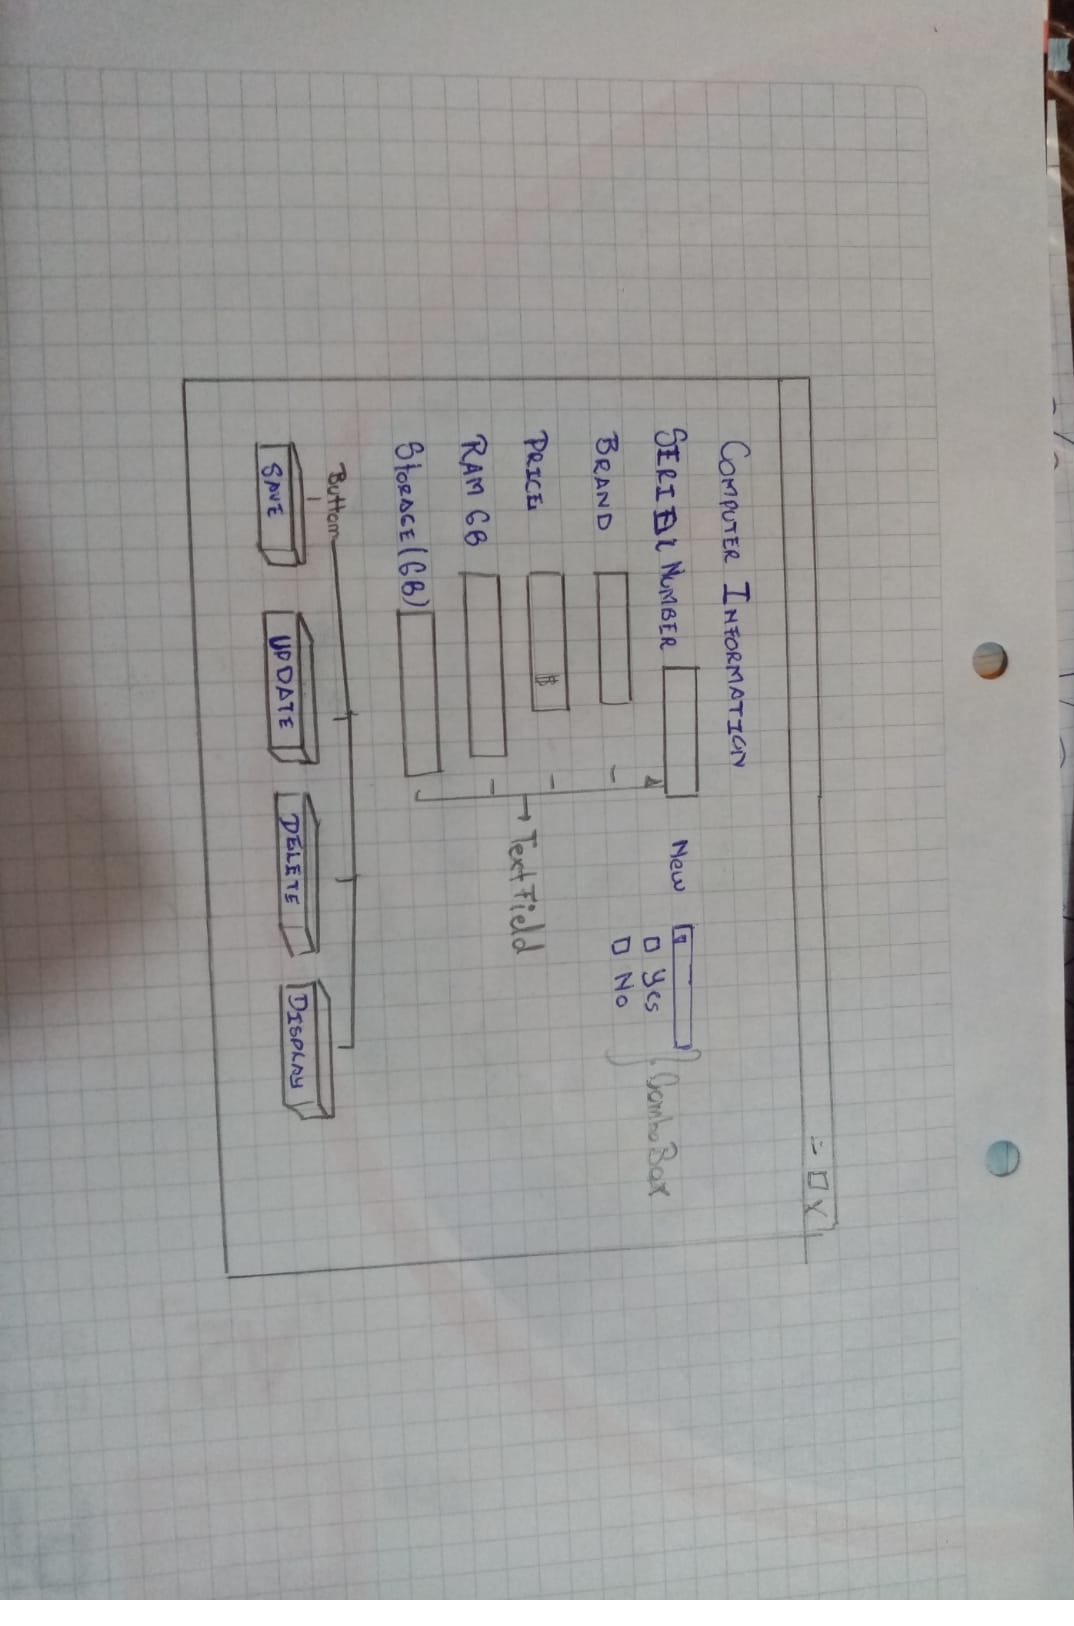 - □ X
COMPUTER INFORMATION
SERIAL NUMBER New
BRAND □ Yes
□ No
ComboBox
PRICE $
TextField
RAM GB
Storage (GB)
Button
SAVE UPDATE DELETE DISPLAY